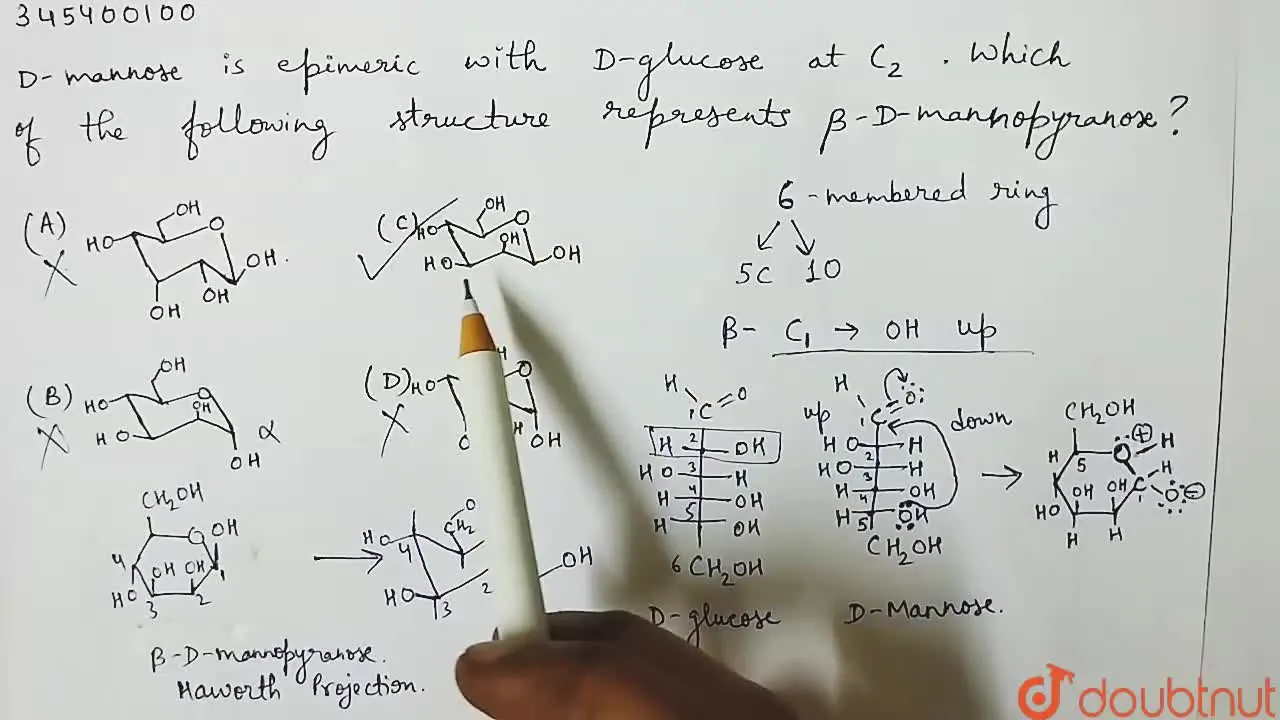 345400100
D-mannose is epimeric with D-glucose at C2. Which
of the following structure represents β-D-mannopyranose?
6-membered ring
5C 1O
β- C1 → OH up
(A)
OH
HO
O
OH
OH
OH
(C)
OH
HO
O
OH
HO
OH
(B)
OH
HO
O
OH
HO
α
OH
(D)
HO
O
OH
H
C
O
H 2 OH
HO 3 H
H 4 OH
H 5 OH
6 CH2OH
D-glucose
up
H
C
O
down
HO H
2
HO 3 H
H 4 OH
H 5 OH
CH2OH
D-Mannose.
CH2OH
H 5 O ⊕ H
H
OH OH C1 O ⊖
HO
H H
CH2OH
O OH
4
OH OH 1
HO 3 2
β-D-mannopyranose.
Haworth Projection.
HO 4
CH2
O
HO 3
2
OH
doubtnut